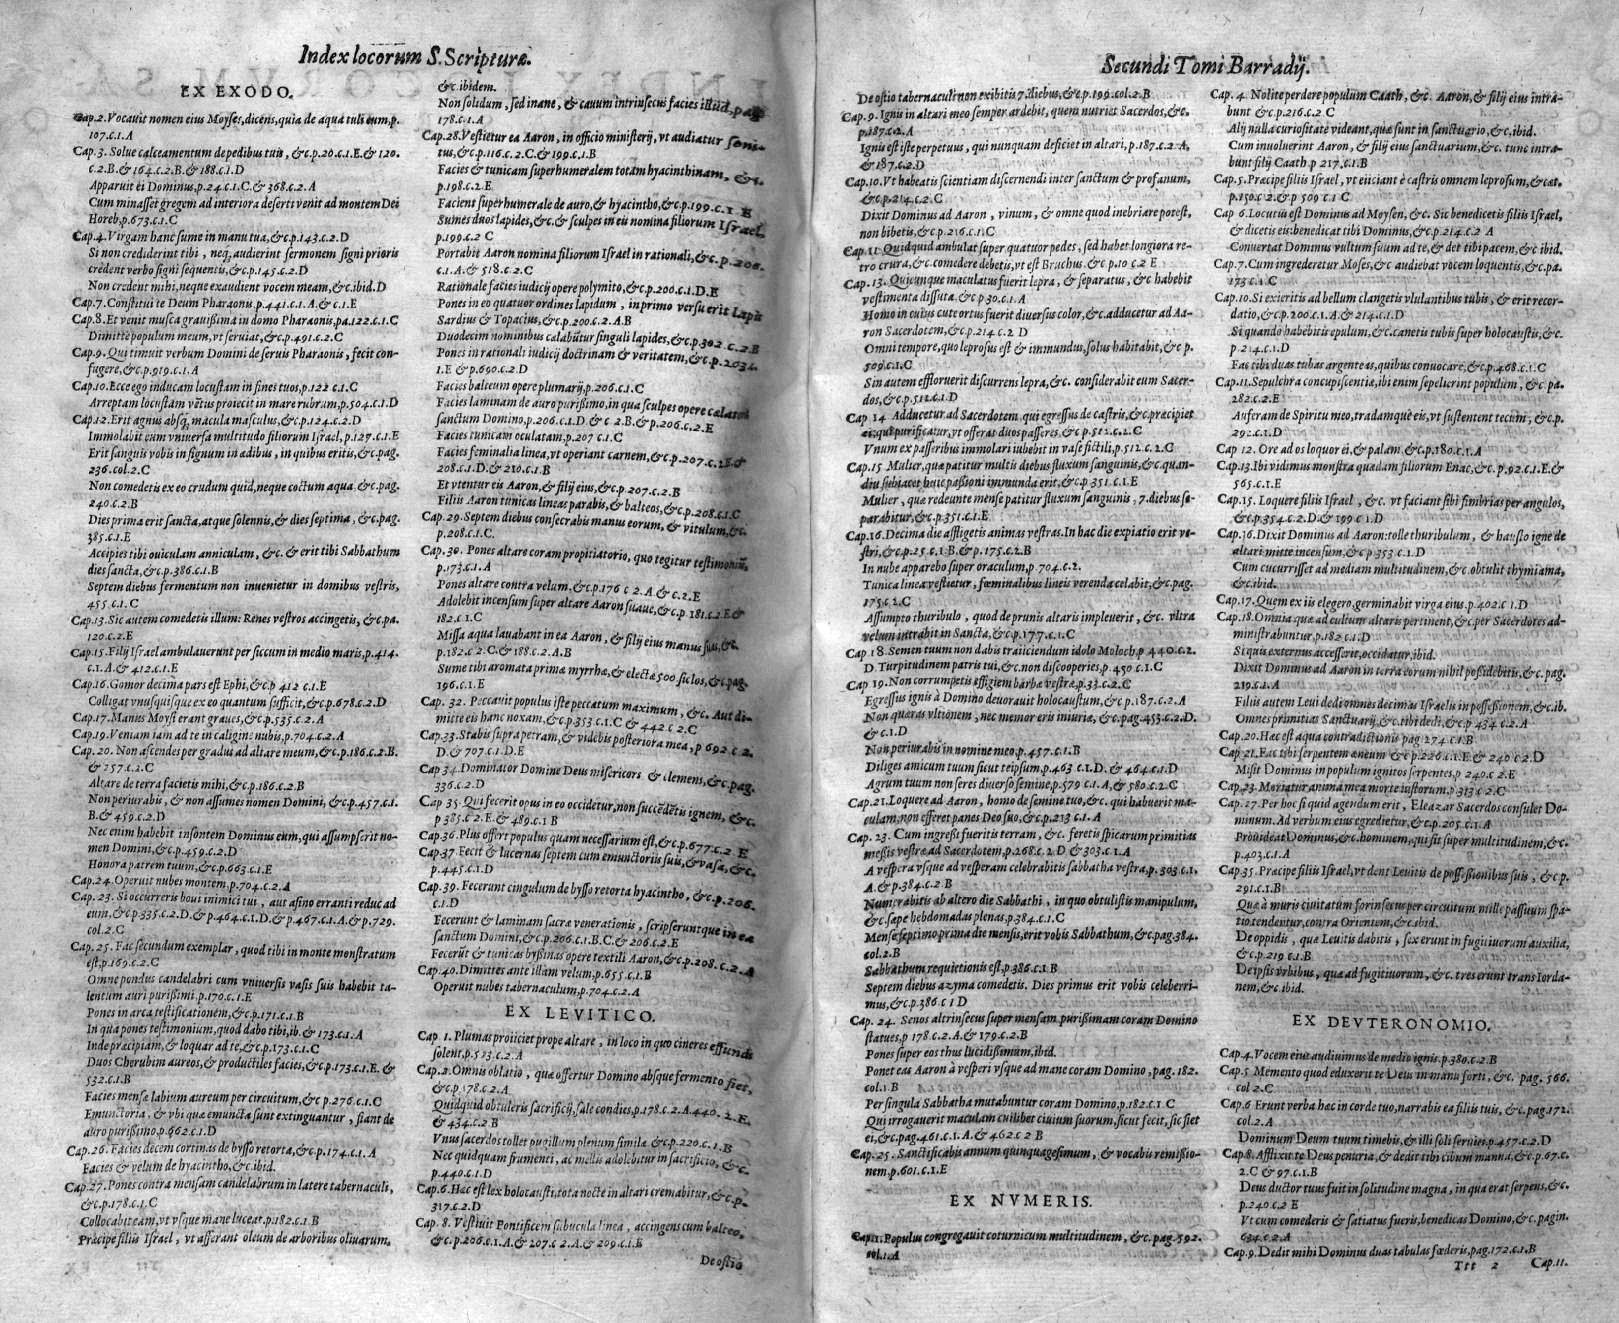 Index locorum S. Scripturæ.
EX EXODO.
Cap.2. Vocauit nomen eius Moyses, dicens, quia de aqua tuli eum, p.
107.c.1.A
Cap.3. Solue calceamentum de pedibus tuis, &c p.20.c.1.E.& 120.
c.2.B.& 164.c.2.B.& 188.c.1.D
Apparuit ei Dominus, p.24.c.1.C.& 368.c.2.A
Cum minasset gregem ad interiora deserti venit ad montem Dei
Horeb, p.673.c.1.C
Cap.4. Virgam hanc sume in manu tua, &c.p.143.c.2.D
Si non crediderint tibi, neq; audierint sermonem signi prioris
credent verbo signi sequentis, &c.p.145.c.2.D
Non credent mihi, neque exaudient vocem meam, &c.ibid.D
Cap.7. Constitui te Deum Pharaonis, p.441.c.1.A.& c.1.E
Cap.8. Et venit musca grauissima in domo Pharaonis, pa.122.c.1.C
Dimitte populum meum, vt seruiat, &c.p.491.c.2.C
Cap.9. Qui timuit verbum Domini de seruis Pharaonis, fecit con-
fugere, &c.p.919.c.1.A
Cap.10. Ecce ego inducam locustam in fines tuos, p.122 c.1.C
Arreptam locustam vētus proiecit in mare rubrum, p.504.c.1.D
Cap.12. Erit agnus absq; macula masculus, &c.p.124.c.2.D
Immolabit eum vniuersa multitudo filiorum Israel, p.127.c.1.E
Erit sanguis vobis in signum in ædibus, in quibus eritis, &c.pag.
236.col.2.C
Non comedetis ex eo crudum quid, neque coctum aqua, &c.pag.
240.c.2.B
Dies prima erit sancta, atque solennis, & dies septima, &c.pag.
385.c.1.E
Accipies tibi ouiculam anniculam, &c. & erit tibi Sabbathum
dies sancta, &c.p.386.c.1.B
Septem diebus fermentum non inuenietur in domibus vestris,
455.c.1.C
Cap.13. Sic autem comedetis illum: Renes vestros accingetis, &c.pa.
120.c.2.E
Cap.15. Filij Israel ambulauerunt per siccum in medio maris, p.414.
c.1.A.& 412.c.1.E
Cap.16. Gomor decima pars est Ephi, &c.p 412 c.1.E
Colligat vnusquisque ex eo quantum sufficit, &c.p.678.c.2.D
Cap.17. Manus Moysi erant graues, &c.p.535.c.2.A
Cap.19. Veniam iam ad te in caligine nubis, p.704.c.2.A
Cap.20. Non ascendes per gradus ad altare meum, &c.p.186.c.2.B.
& 257.c.2.C
Altare de terra facietis mihi, &c.p.186.c.2.B
Non periurabis, & non assumes nomen Domini, &c.p.457.c.1.
B.& 459.c.2.D
Nec enim habebit insontem Dominus eum, qui assumpserit no-
men Domini, &c.p.459.c.2.D
Honora patrem tuum, &c.p.663.c.1.E
Cap.24. Operuit nubes montem, p.704.c.2.A
Cap.23. Si occurreris boui inimici tui, aut asino erranti reduc ad
eum, &c.p.335.c.2.D.& p.464.c.1.D.& p.467.c.1.A.& p.729.
col.2.C
Cap.25. Fac secundum exemplar, quod tibi in monte monstratum
est, p.169.c.2.C
Omne pondus candelabri cum vniuersis vasis suis habebit ta-
lentum auri purissimi, p.170.c.1.E
Pones in arca testificationem, &c.p.171.c.1.B
In qua pones testimonium, quod dabo tibi, ib.& 173.c.1.A
Inde præcipiam, & loquar ad te, &c.p.173.c.1.C
Duos Cherubim aureos, & productiles facies, &c.p.173.c.1.E. &
532.c.1.B
Facies mensæ labium aureum per circuitum, &c.p 276.c.1.C
Emunctoria, & vbi quæ emuncta sunt extinguantur, fiant de
auro purissimo, p.662.c.1.D
Cap.26. Facies decem cortinas de bysso retorta, &c.p.174.c.1.A
Facies & velum de hyacintho, &c.ibid.
Cap.27. Pones contra mensam candelabrum in latere tabernaculi,
&c.p.178.c.1.C
Collocabit eam, vt vsque mane luceat, p.182.c.1.B
Præcipe filiis Israel, vt afferant oleum de arboribus oliuarum,
&c.ibidem.
Non solidum, sed inane, & cauum intrinsecus facies illud, pag
178.c.1.A
Cap.28. Vestietur ea Aaron, in officio ministerij, vt audiatur soni-
tus, &c.p.116.c.2.C.& 199.c.1.B
Facies & tunicam superhumeralem totam hyacinthinam, &c.
p.198.c.2.E
Facient superhumerale de auro, & hyacintho, &c.p.199.c.1 E
Sumes duos lapides, &c.& sculpes in eis nomina filiorum Israel,
p.199.c.2 C
Portabit Aaron nomina filiorum Israel in rationali, &c.p.200.
c.1.A.& 518.c.2.C
Rationale facies iudicij opere polymito, &c.p.200.c.1.D.E
Pones in eo quatuor ordines lapidum, in primo versu erit lapis
Sardius & Topacius, &c.p.200.c.2.A.B
Duodecim nominibus calabūtur singuli lapides, &c.p.302.c.2.B
Pones in rationali iudicij doctrinam & veritatem, &c.p.203.c.
1.E & p.690.c.2.D
Facies balteum opere plumarij, p.206.c.1.C
Facies laminam de auro purissimo, in qua sculpes opere cælatoris
sanctum Domino, p.206.c.1.D.& c 2.B.& p.206.c.2.E
Facies tunicam oculatam, p.207 c.1.C
Facies feminalia linea, vt operiant carnem, &c.p.207.c.2.E &
208.c.1.D.& 210.c.1.B
Et vtentur eis Aaron, & filij eius, &c.p.207.c.2.B
Filiis Aaron tunicas lineas parabis, & balteos, &c.p.208.c.1.C
Cap.29. Septem diebus consecrabis manus eorum, & vitulum, &c.
p.208.c.1.C.
Cap.30. Pones altare coram propitiatorio, quo tegitur testimoniū,
p.173.c.1.A
Pones altare contra velum, &c.p.176 c 2.A & c.2.E
Adolebit incensum super altare Aaron suaue, &c.p 181.c.2 E &
182.c 1.C
Missa aqua lauabunt in ea Aaron, & filij eius manus suas, &c.
p.182.c 2.C.& 188.c.2.A.B
Sume tibi aromata primæ myrrhæ, & electæ 500 siclos, &c.pag.
196.c.1.E
Cap. 32. Peccauit populus iste peccatum maximum, &c. Aut di-
mitte eis hanc noxam, &c.p.353.c.1.C & 442 c 2.C
Cap.33. Stabis supra petram, & videbis posteriora mea, p 692 c 2.
D.& 707 c.1.D.E
Cap 34. Dominator Domine Deus misericors & clemens, &c.pag.
336.c.2.D
Cap 35. Qui fecerit opus in eo occidetur, non succēdetis ignem, &c.
p 385.c 2.E.& 489.c.1 B
Cap.36. Plus offert populus quam necessarium est, &c.p.677.c.2 E
Cap.37 Fecit & lucernas septem cum emunctoriis suis, & vasa, &c.
p.445.c.1.D
Cap.39. Fecerunt cingulum de bysso retorta hyacintho, &c.p.206.
c.1.D
Fecerunt & laminam sacræ venerationis, scripseruntque in ea
sanctum Domini, &c.p.206.c.1.B.C.& 206.c.2.E
Fecerūt & tunicas byssinas opere textili Aaron, &c.p.208.c.2.A
Cap.40. Dimittes ante illam velum, p.655.c.1.B
Operuit nubes tabernaculum, p.704.c.2.A
EX LEVITICO.
Cap 1. Plumas proiiciet prope altare, in loco in quo cineres effundi
solent, p.523.c.2.A
Cap.2. Omnis oblatio, quæ offertur Domino absque fermento fiet,
&c.p.178.c 2.A
Quidquid obtuleris sacrificij, sale condies, p.178.c.2.A.440.2.E.
& 434.c.2.B
Vnus sacerdos tollet pugillum plenum similæ &c.p.220.c.1.B
Nec quidquam frumenti, ac mellis adolebitur in sacrificio, &c.
p.440.c.1.D
Cap.6. Hæc est lex holocausti, tota nocte in altari cremabitur, &c.p.
317.c.2.D
Cap. 8. Vestiuit Pontificem subucula linea, accingens cum balteo,
&c.p.206.c.1.A.& 207.c 2.A.& 209.c.1.E
De ostio
Secundi Tomi Barradij.
De ostio tabernaculi non exibitis 7. diebus, &c.p.199.col.2.B
Cap.9. Ignis in altari meo semper ardebit, quem nutriet Sacerdos, &c.
p.187.c.2.A
Ignis est iste perpetuus, qui nunquam deficiet in altari, p.187.c.2.A,
& 187.c.2.D
Cap.10. Vt habeatis scientiam discernendi inter sanctum & profanum,
&c.p.214.c.2.C
Dixit Dominus ad Aaron, vinum, & omne quod inebriare potest,
non bibetis, &c.p.216.c.1.C
Cap.11. Quidquid ambulat super quatuor pedes, sed habet longiora re-
tro crura, &c.comedere debetis, vt est Bruchus. &c.p.10 c.2 E
Cap.13. Quicunque maculatus fuerit lepra, & separatus, &c habebit
vestimenta dissuta, &c p 30.c.1.A
Homo in cuius cute ortus fuerit diuersus color, &c.adducetur ad Aa-
ron Sacerdotem, &c.p.214.c.2 D
Omni tempore, quo leprosus est & immundus, solus habitabit, &c p.
509.c.1.C
Sin autem effloruerit discurrens lepra, &c. considerabit eum Sacer-
dos, &c.p.512.c.1.D
Cap 14 Adducetur ad Sacerdotem qui egressus de castris, &c.præcipiet
ei qui purificatur, vt offerat duos passeres, &c p.512.c.2.C
Vnum ex passeribus immolari iubebit in vase fictili, p.512.c.2.C
Cap.15 Mulier, quæ patitur multis diebus fluxum sanguinis, &c.quan-
diu subiacet huic passioni immunda erit, &c.p.351.c.1.E
Mulier, quæ redeunte mense patitur fluxum sanguinis, 7.diebus se-
parabitur, &c.p.351.c.1.E
Cap.16. Decima die affligetis animas vestras. In hac die expiatio erit ve-
stri, &c.p.25.c.1.B.& p.175.c.2.B
In nube apparebo super oraculum, p.704.c.2.
Tunica linea vestietur, fœminalibus lineis verenda celabit, &c.pag.
175.c.2.C
Assumpto thuribulo, quod de prunis altaris impleuerit, &c. vltra
velum intrabit in Sancta, &c.p.177.c.1.C
Cap 18. Semen tuum non dabis traiiciendum idolo Moloch, p 440.c.2.
D. Turpitudinem patris tui, &c.non discooperies, p. 450 c.1.C
Cap 19. Non corrumpetis effigiem barbæ vestræ, p.33.c.2.C
Egressus ignis à Domino deuorauit holocaustum, &c p.187.c.2.A
Non quæras vltionem, nec memor eris iniuria, &c.pag.453.c.2.D.
& c.1.D
Non periurabis in nomine meo, p.457.c.1.B
Diliges amicum tuum sicut teipsum, p.463 c.1.D. & 464.c.1.D
Agrum tuum non seres diuerso semine, p.579 c.1.A, & 580.c.2.C
Cap.21. Loquere ad Aaron, homo de semine tuo, &c. qui habuerit ma-
culam, non offeret panes Deo suo, &c.p,213 c.1.A
Cap. 23. Cum ingressi fueritis terram, &c. feretis spicarum primitias
messis vestræ ad Sacerdotem, p.268.c.2 D & 303.c.1.A
A vespera vsque ad vesperam celebrabitis sabbatha vestra, p.303.c.1.
A.& p.384.c.2.B
Numerabitis ab altero die Sabbathi, in quo obtulistis manipulum,
& sæpe hebdomadas plenas, p.384.c.1.C
Mense septimo prima die mensis, erit vobis Sabbathum, &c.pag.384.
col.2.B
Sabbathum requietionis est, p.386.c.1 B
Septem diebus azyma comedetis. Dies primus erit vobis celeberri-
mus, &c.p.386 c 1 D
Cap. 24. Senos altrinsecus super mensam purissimam coram Domino
statues, p 178.c.2.A.& 179.c.2.B
Pones super eos thus lucidissimum, ibid.
Ponet eas Aaron à vesperi vsque ad mane coram Domino, pag. 182.
col.1 B
Per singula Sabbatha mutabuntur coram Domino, p.182.c.1 C
Qui irrogauerit maculam cuilibet ciuium suorum, sicut fecit, sic fiet
ei, &c.pag.461.c.1.A.& 462.c 2 B
Cap.25. Sanctificabis annum quinquagesimum, & vocabis remissio-
nem, p.601.c.1.E
EX NVMERIS.
Cap.11. Populus congregauit coturnicum multitudinem, &c.pag.592.
col.1.A
Cap. 4 Nolite perdere populum Caath, &c. Aaron, & filij eius intra-
bunt &c.p.216.c.2 C
Alij nulla curiositate videant, quæ sunt in sanctuario, &c, ibid.
Cum inuoluerint Aaron, & filij eius sanctuarium, &c. tunc intra-
bunt filij Caath p 217.c.1.B
Cap.5. Præcipe filiis Israel, vt eiiciant è castris omnem leprosum, &cæt.
p.150.c 2.& p 509 c 1 C
Cap 6. Locutus est Dominus ad Moysen, &c. Sic benedicetis filiis Israel,
& dicetis eis: benedicat tibi Dominus, &c.p.214.c.2 A
Conuertat Dominus vultum suum ad te, & det tibi pacem, &c ibid.
Cap.7. Cum ingrederetur Moses, &c audiebat vocem loquentis, &c.pa.
173 c.1 C
Cap.10. Si exieritis ad bellum clangetis vlulantibus tubis, & erit recor-
datio, &c.p.200.c.1.A.& 214.c.1.D
Si quando habebitis epulum, &c.canetis tubis super holocaustis, &c.
p.214.c.1.D
Fac tibi duas tubas argenteas, quibus conuocare, &c.p.468.c.1.C
Cap.11. Sepulchra concupiscentiæ, ibi enim sepelierint populum, &c pa.
282.c.2.E
Auferam de Spiritu meo, tradamque eis, vt sustentent tecum, &c.p.
292.c.1.D
Cap 12. Ore ad os loquor ei, & palam, &c.p.180.c.1.A
Cap.13. Ibi vidimus monstra quædam filiorum Enac, &c. p.92.c.1.E.&
565.c.1.E
Cap.15. Loquere filiis Israel, &c. vt faciant sibi fimbrias per angulos,
&c.p.354.c.2.D.& 199 c 1.D
Cap.16. Dixit Dominus ad Aaron: tolle thuribulum, & hausto igne de
altari mitte incensum, &c p 353.c.1.D
Cum cucurrisset ad mediam multitudinem, &c.obtulit thymiama,
&c.ibid.
Cap.17. Quem ex iis elegero, germinabit virga eius, p.402.c 1 D
Cap.18. Omnia quæ ad cultum altaris pertinent, &c.per Sacerdotes ad-
ministrabuntur, p.182 c.1.D
Si quis externus accesserit, occidatur, ibid.
Dixit Dominus ad Aaron in terra eorum nihil possidebitis, &c.pag.
219.c.1.A
Filiis autem Leui dedi omnes decimas Israelis in possessionem, &c.ib.
Omnes primitias Sanctuarij, &c.tibi dedi, &c.p 434 c.2.A
Cap.20. Hæc est aqua contradictionis pag 274 c.1.B
Cap 21. Fac tibi serpentem æneum &c p 226 c 1.E & 240 c 2 D
Misit Dominus in populum ignitos serpentes, p 240 c 2.E
Cap.23. Moriatur anima mea morte iustorum, p 313 c 2.C
Cap.27. Per hoc si quid agendum erit, Eleazar Sacerdos consulet Do-
minum. Ad verbum eius egredietur, &c.p.205.c.1.A
Prouideat Dominus, &c.hominem, qui sit super multitudinem, &c.
p.403.c.1.A
Cap.35. Præcipe filiis Israel, vt dent Leuitis de possessionibus suis, &c p.
291.c.1.B
Quæ à muris ciuitatum forinsecus per circuitum mille passuum spa-
tio tendentur, contra Orientem, &c.ibid.
De oppidis, quæ Leuitis dabitis, sex erunt in fugitiuorum auxilia,
&c.p.219 c.1.B
De ipsis vrbibus, quæ ad fugitiuorum, &c. tres erunt trans Iorda-
nem, &c.ibid.
EX DEVTERONOMIO.
Cap.4. Vocem eius audiuimus de medio ignis, p.380.c.2.B
Cap.5 Memento quod eduxerit te Deus in manu forti, &c. pag. 566.
col 2.C
Cap.6 Erunt verba hæc in corde tuo, narrabis ea filiis tuis, &c.pag.172.
col.2.A
Dominum Deum tuum timebis, & illi soli seruies, p.457.c.2.D
Cap.8. Afflixit te Deus penuria, & dedit tibi cibum manna, &c.p.67.c.
2.C & 97.c.1.B
Deus ductor tuus fuit in solitudine magna, in qua erat serpens, &c.
p.240.c.2 E
Vt cum comederis & satiatus fueris, benedicas Domino, &c.pagin.
634.c.2.A
Cap.9. Dedit mihi Dominus duas tabulas fœderis, pag.172.c.1.B
Ttt 2 Cap.11.